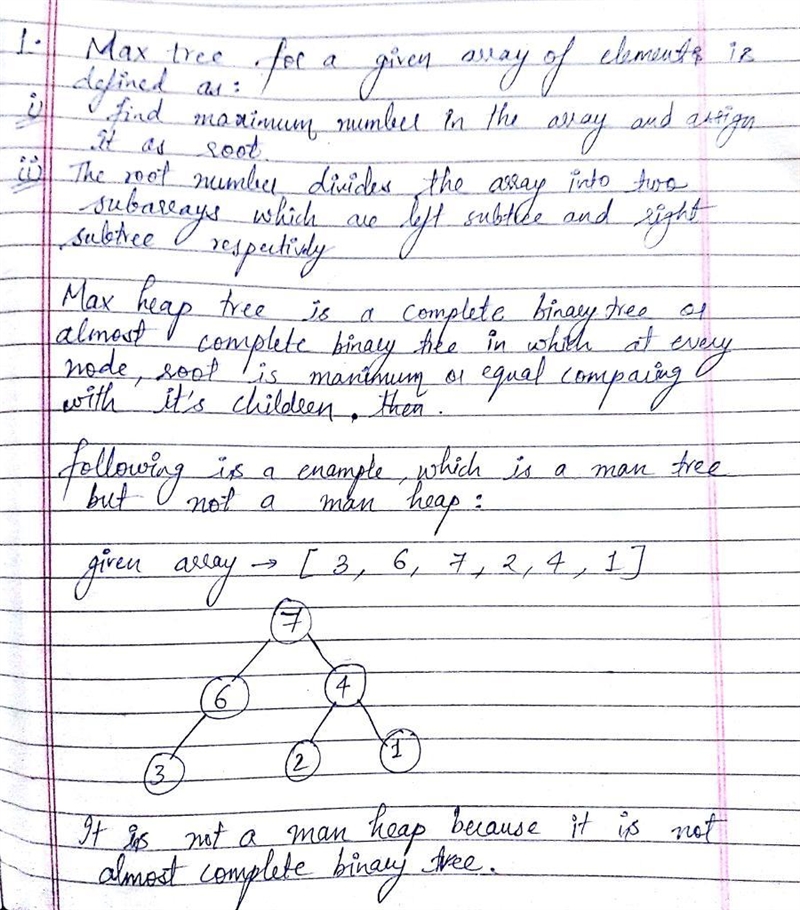 1. Max tree for a given array of elements is
defined as:
i) find maximum number in the array and assign
it as root.
ii) The root number divides the array into two
subarrays which are left subtree and right
subtree respectivly
Max heap tree is a complete binary tree or
almost complete binary tree in which at every
node, root is maximum or equal comparing
with it's children, then.
following is a example, which is a max tree
but not a max heap:
given array → [3, 6, 7, 2, 4, 1]
7
6 4
3 2 1
It is not a max heap because it is not
almost complete binary tree.